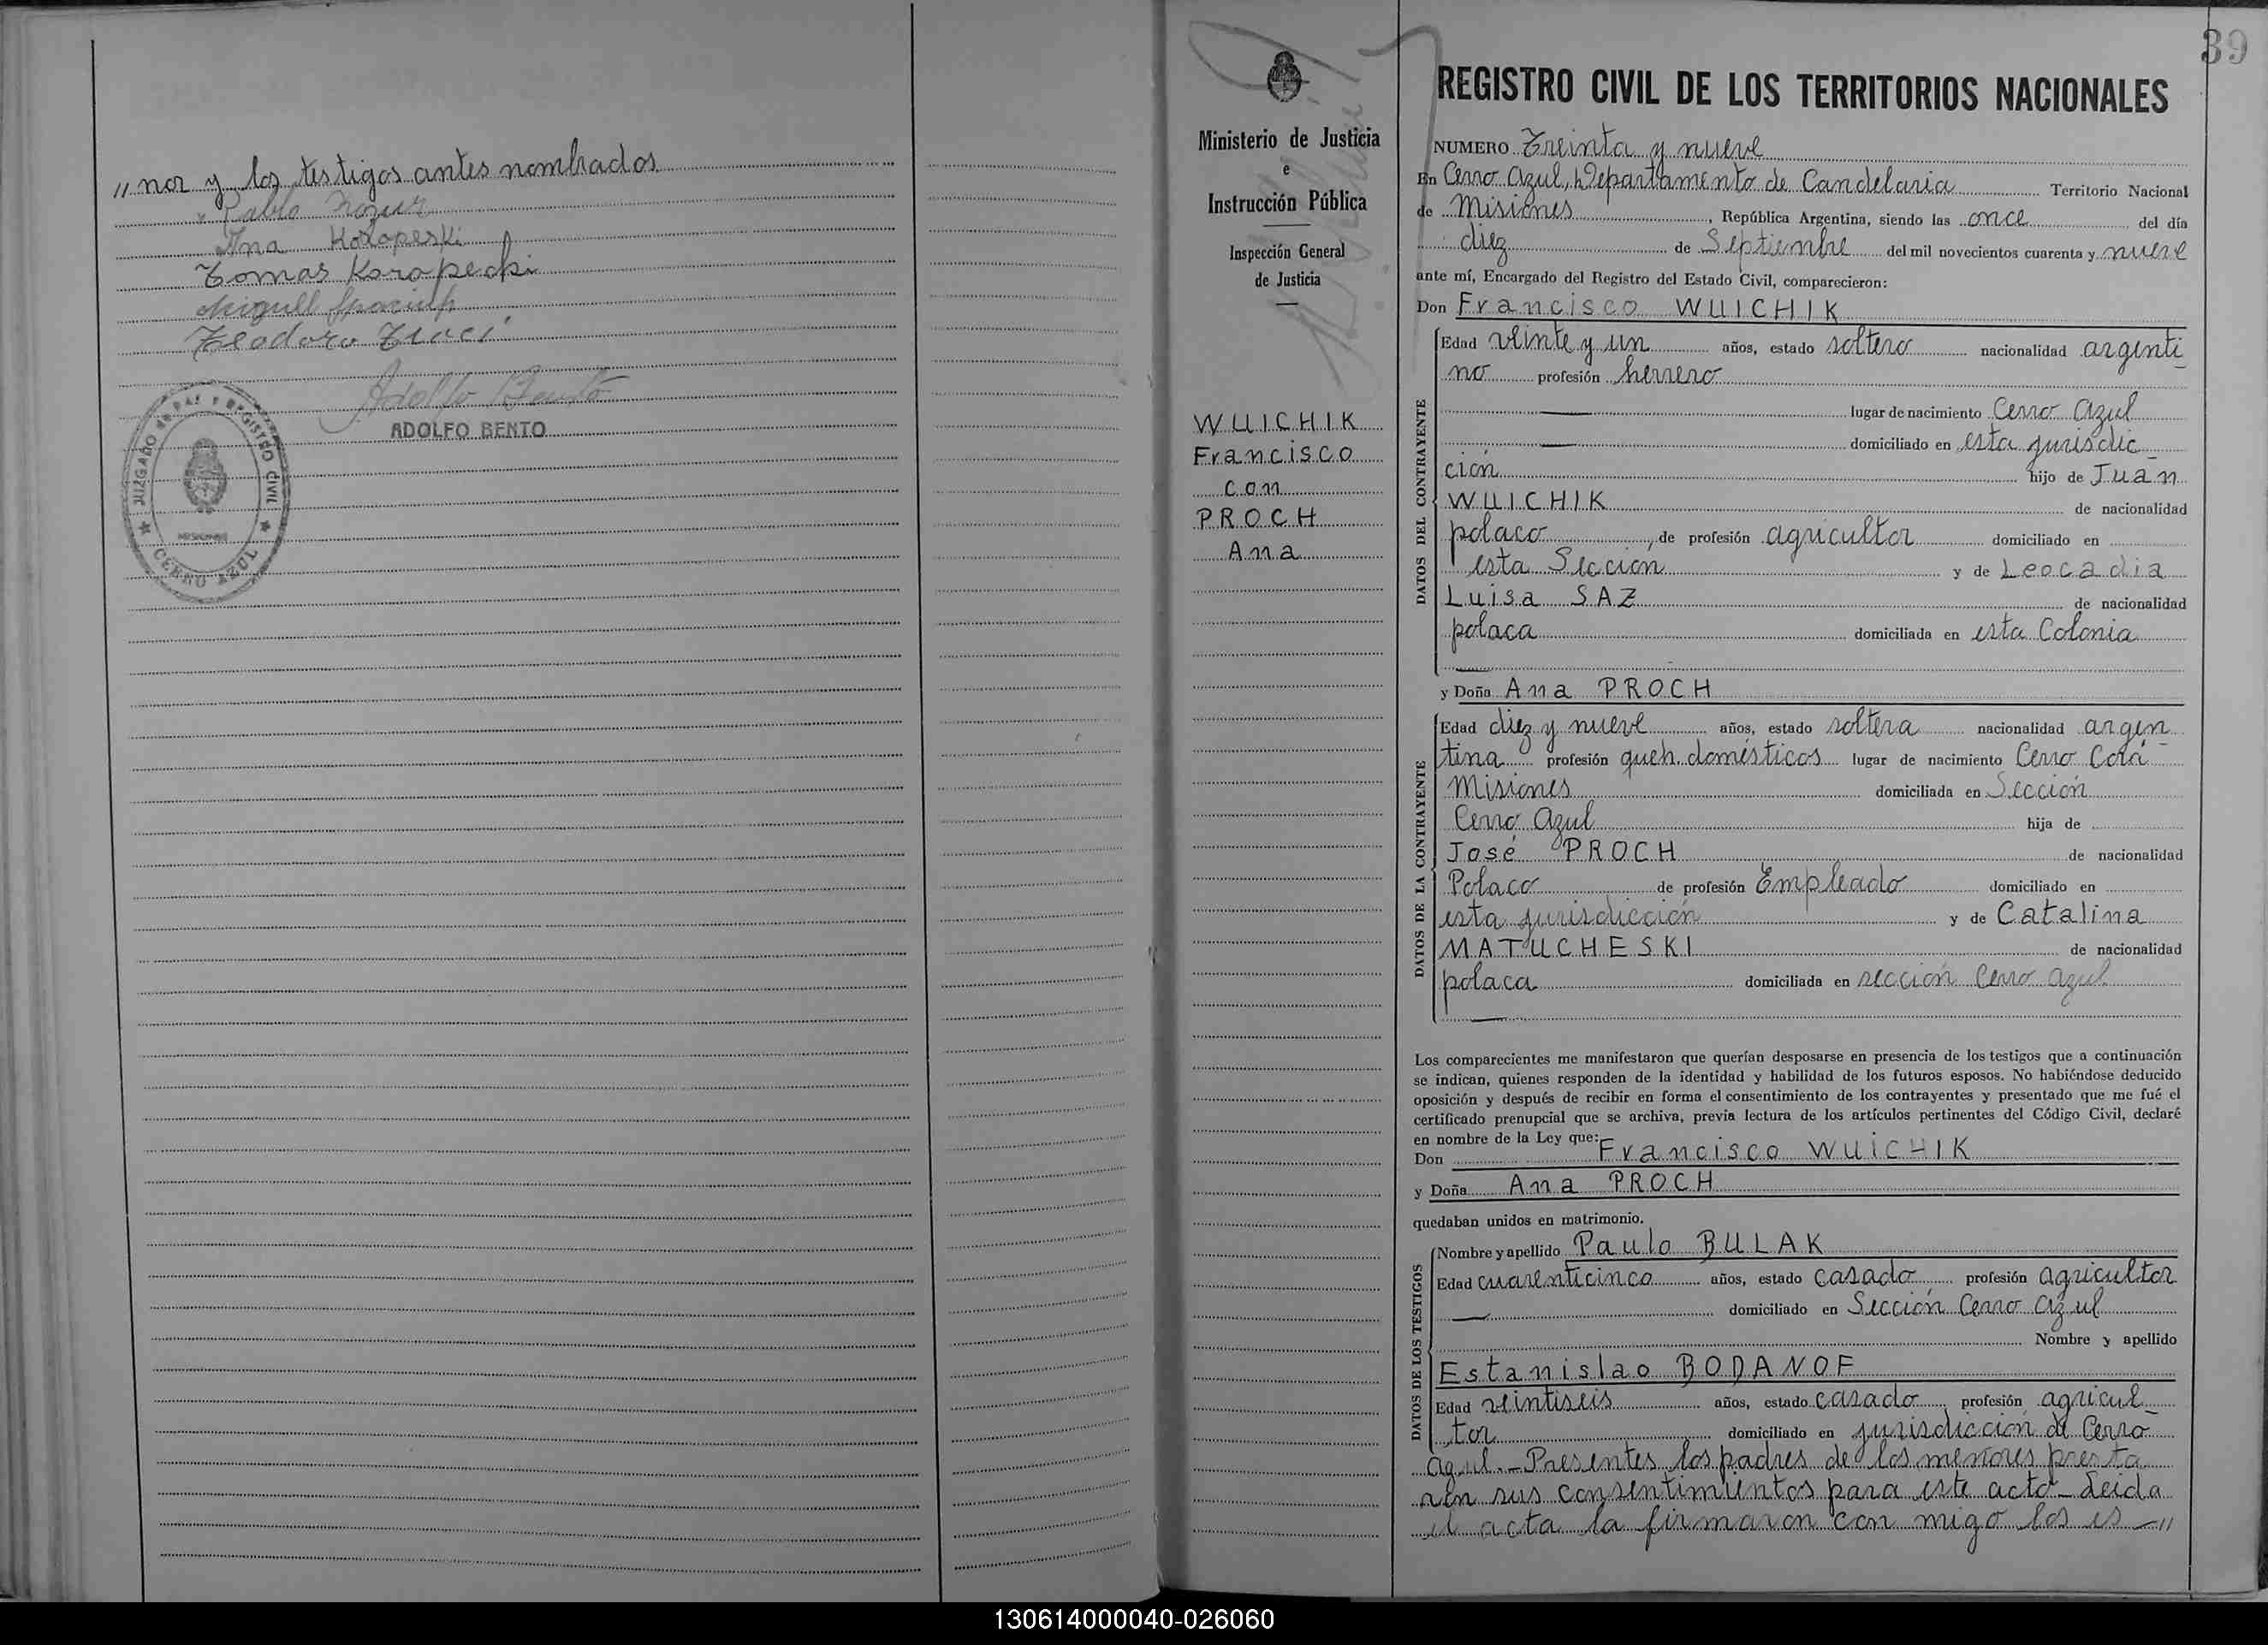 〃nor y los testigos antes nombrados
Pablo
Ana Koropeski
Tomas Karapecki
Miguel
Teodoro
Adolfo Bento
ADOLFO BENTO
JUZGADO DE PAZ Y REGISTRO CIVIL
★ CERRO AZUL ★
MISIONES
39
Ministerio de Justicia
e
Instrucción Pública
Inspección General
de Justicia
WUICHIK
Francisco
con
PROCH
Ana
REGISTRO CIVIL DE LOS TERRITORIOS NACIONALES
NUMERO Treinta y nueve
En Cerro Azul, Departamento de Candelaria Territorio Nacional
de Misiones, República Argentina, siendo las once del día
diez de Septiembre del mil novecientos cuarenta y nueve
ante mí, Encargado del Registro del Estado Civil, comparecieron:
Don Francisco WUICHIK
DATOS DEL CONTRAYENTE
Edad veinte y un años, estado soltero nacionalidad argenti
no profesión herrero
lugar de nacimiento Cerro Azul
domiciliado en esta jurisdic
ción hijo de Juan
WUICHIK de nacionalidad
polaco, de profesión agricultor domiciliado en
esta Sección y de Leocadia
Luisa SAZ de nacionalidad
polaca domiciliada en esta Colonia
y Doña Ana PROCH
DATOS DE LA CONTRAYENTE
Edad diez y nueve años, estado soltera nacionalidad argen
tina profesión queh. domésticos lugar de nacimiento Cerro Corá
Misiones domiciliada en Sección
Cerro Azul hija de
José PROCH de nacionalidad
Polaco de profesión Empleado domiciliado en
esta jurisdicción y de Catalina
MATUCHESKI de nacionalidad
polaca domiciliada en sección Cerro Azul
Los comparecientes me manifestaron que querían desposarse en presencia de los testigos que a continuación
se indican, quienes responden de la identidad y habilidad de los futuros esposos. No habiéndose deducido
oposición y después de recibir en forma el consentimiento de los contrayentes y presentado que me fué el
certificado prenupcial que se archiva, previa lectura de los artículos pertinentes del Código Civil, declaré
en nombre de la Ley que:
Don Francisco WUICHIK
y Doña Ana PROCH
quedaban unidos en matrimonio.
DATOS DE LOS TESTIGOS
Nombre y apellido Paulo BULAK
Edad cuarenticinco años, estado casado profesión agricultor
domiciliado en Sección Cerro Azul
Nombre y apellido
Estanislao BODANOF
Edad veintiseis años, estado casado profesión agricul
tor domiciliado en jurisdicción de Cerro
Azul.- Presentes los padres de los menores presta
ren sus consentimientos para este acto- Leida
el acta la firmaron con migo los es-〃
130614000040-026060